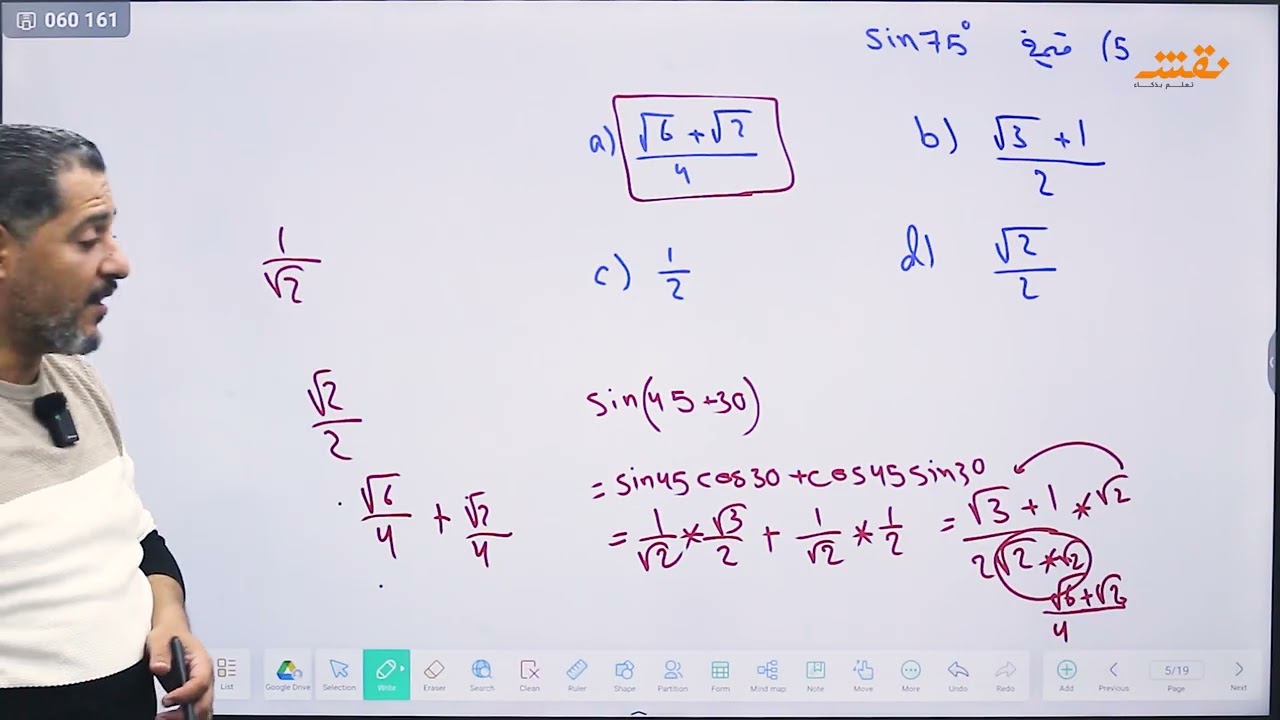 060 161
5) قيمة sin75°
نقش
تعلم بذكاء
a) (√6 + √2)/4
b) (√3 + 1)/2
c) 1/2
d) √2/2
1/√2
√2/2
√6/4 + √2/4
sin(45+30)
= sin45cos30+cos45sin30
= 1/√2 * √3/2 + 1/√2 * 1/2 = (√3+1 * √2)/(2√2 * √2)
(√6+√2)/4
List Google Drive Selection Write Eraser Search Clean Ruler Shape Partition Form Mind map Note Move More Undo Redo Add Previous 5/19 Page Next